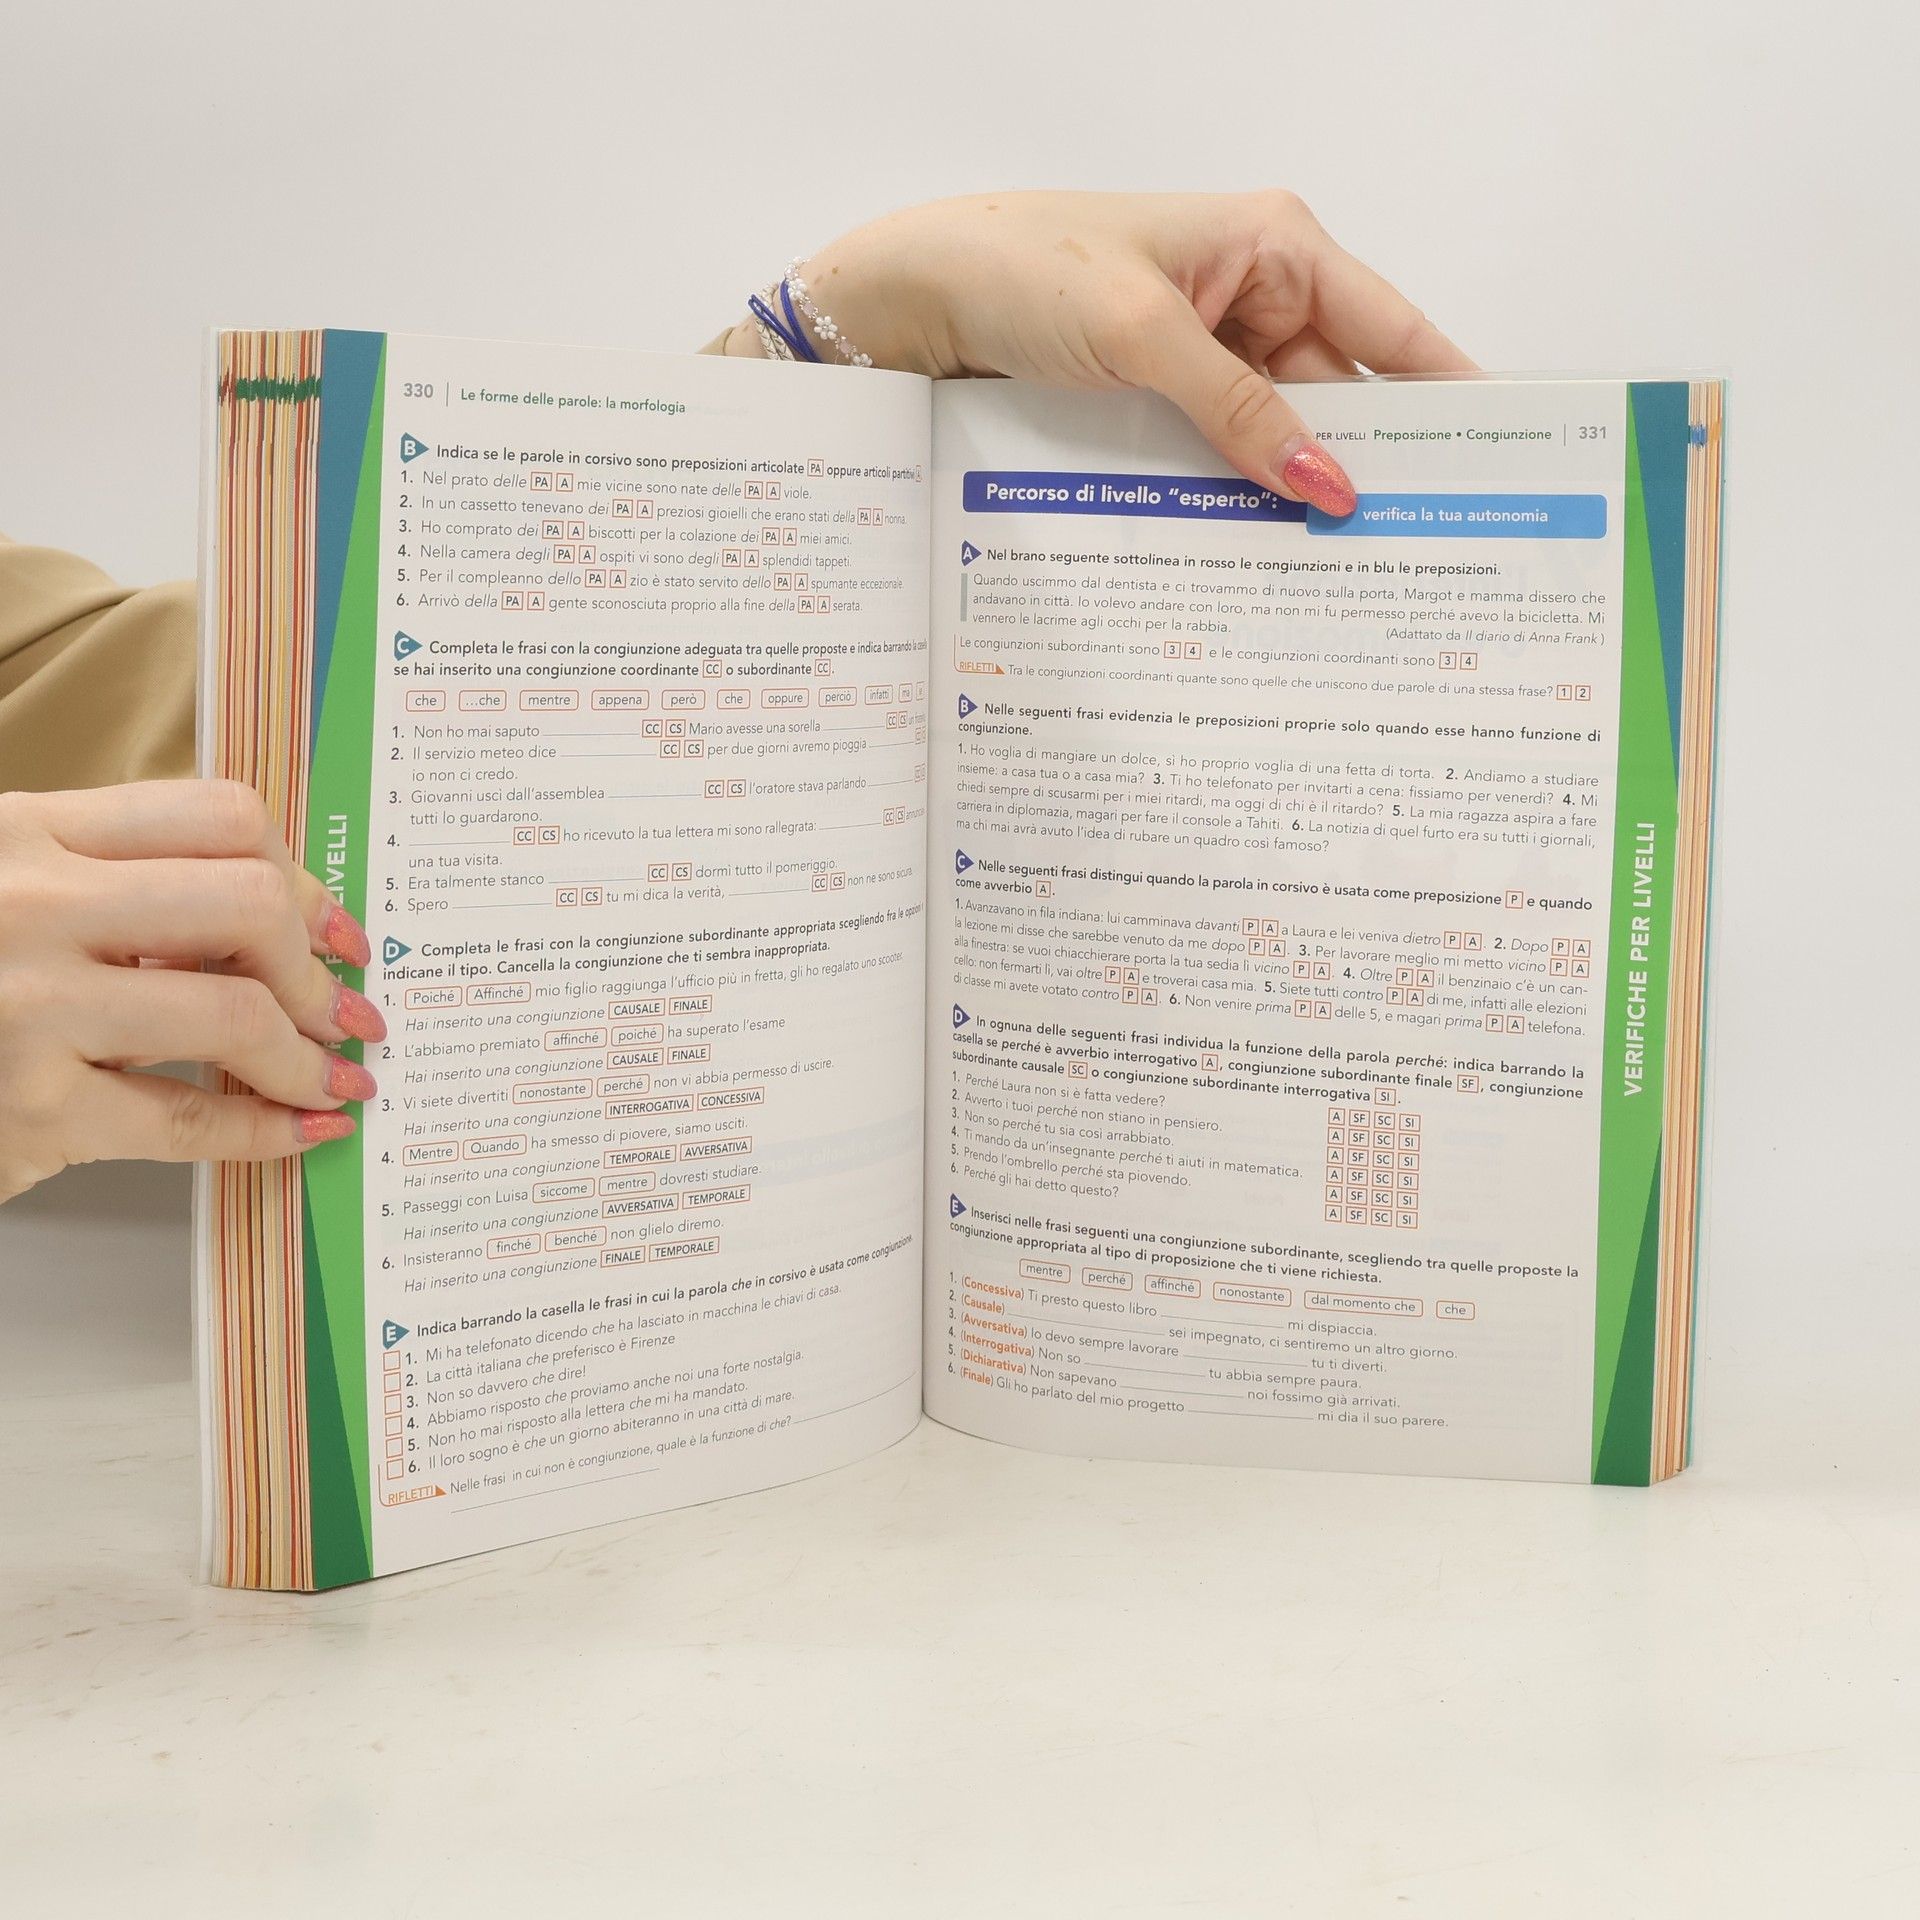 330 | Le forme delle parole: la morfologia
B Indica se le parole in corsivo sono preposizioni articolate PA oppure articoli partitivi A
1. Nel prato delle PA A mie vicine sono nate delle PA A viole.
2. In un cassetto tenevano dei PA A preziosi gioielli che erano stati della PA A nonna.
3. Ho comprato dei PA A biscotti per la colazione dei PA A miei amici.
4. Nella camera degli PA A ospiti vi sono degli PA A splendidi tappeti.
5. Per il compleanno dello PA A zio è stato servito dello PA A spumante eccezionale.
6. Arrivò della PA A gente sconosciuta proprio alla fine della PA A serata.
C Completa le frasi con la congiunzione adeguata tra quelle proposte e indica barrando la
se hai inserito una congiunzione coordinante CC o subordinante CC.
che ...che mentre appena però che oppure perciò infatti ma
1. Non ho mai saputo ____ CC CS Mario avesse una sorella ____ CC CS un
2. Il servizio meteo dice ____ CC CS per due giorni avremo pioggia ____
io non ci credo.
3. Giovanni uscì dall'assemblea ____ CC CS l'oratore stava parlando ____
tutti lo guardarono.
4. ____ CC CS ho ricevuto la tua lettera mi sono rallegrata: ____ CC CS
una tua visita.
5. Era talmente stanco ____ CC CS dormì tutto il pomeriggio.
6. Spero ____ CC CS tu mi dica la verità, ____ CC CS non ne sono sicura.
D Completa le frasi con la congiunzione subordinante appropriata scegliendo fra le opzioni
indicane il tipo. Cancella la congiunzione che ti sembra inappropriata.
1. Poiché Affinché mio figlio raggiunga l'ufficio più in fretta, gli ho regalato uno scooter.
Hai inserito una congiunzione CAUSALE FINALE
2. L'abbiamo premiato affinché poiché ha superato l'esame
Hai inserito una congiunzione CAUSALE FINALE
3. Vi siete divertiti nonostante perché non vi abbia permesso di uscire.
Hai inserito una congiunzione INTERROGATIVA CONCESSIVA
4. Mentre Quando ha smesso di piovere, siamo usciti.
Hai inserito una congiunzione TEMPORALE AVVERSATIVA
5. Passeggi con Luisa siccome mentre dovresti studiare.
Hai inserito una congiunzione AVVERSATIVA TEMPORALE
6. Insisteranno finché benché non glielo diremo.
Hai inserito una congiunzione FINALE TEMPORALE
E Indica barrando la casella le frasi in cui la parola che in corsivo è usata come congiunzione.
1. Mi ha telefonato dicendo che ha lasciato in macchina le chiavi di casa.
2. La città italiana che preferisco è Firenze
3. Non so davvero che dire!
4. Abbiamo risposto che proviamo anche noi una forte nostalgia.
5. Non ho mai risposto alla lettera che mi ha mandato.
6. Il loro sogno è che un giorno abiteranno in una città di mare.
RIFLETTI Nelle frasi in cui non è congiunzione, quale è la funzione di che? ____
LIVELLI
PER LIVELLI Preposizione • Congiunzione | 331
Percorso di livello "esperto":
verifica la tua autonomia
A Nel brano seguente sottolinea in rosso le congiunzioni e in blu le preposizioni.
Quando uscimmo dal dentista e ci trovammo di nuovo sulla porta, Margot e mamma dissero che
andavano in città. Io volevo andare con loro, ma non mi fu permesso perché avevo la bicicletta. Mi
vennero le lacrime agli occhi per la rabbia. (Adattato da Il diario di Anna Frank )
Le congiunzioni subordinanti sono 3 4 e le congiunzioni coordinanti sono 3 4
RIFLETTI Tra le congiunzioni coordinanti quante sono quelle che uniscono due parole di una stessa frase? 1 2
B Nelle seguenti frasi evidenzia le preposizioni proprie solo quando esse hanno funzione di
congiunzione.
1. Ho voglia di mangiare un dolce, sì ho proprio voglia di una fetta di torta. 2. Andiamo a studiare
insieme: a casa tua o a casa mia? 3. Ti ho telefonato per invitarti a cena: fissiamo per venerdì? 4. Mi
chiedi sempre di scusarmi per i miei ritardi, ma oggi di chi è il ritardo? 5. La mia ragazza aspira a fare
carriera in diplomazia, magari per fare il console a Tahiti. 6. La notizia di quel furto era su tutti i giornali,
ma chi mai avrà avuto l'idea di rubare un quadro così famoso?
C Nelle seguenti frasi distingui quando la parola in corsivo è usata come preposizione P e quando
come avverbio A.
1. Avanzavano in fila indiana: lui camminava davanti P A a Laura e lei veniva dietro P A. 2. Dopo P A
la lezione mi disse che sarebbe venuto da me dopo P A. 3. Per lavorare meglio mi metto vicino P A
alla finestra: se vuoi chiacchierare porta la tua sedia lì vicino P A. 4. Oltre P A il benzinaio c'è un can-
cello: non fermarti lì, vai oltre P A e troverai casa mia. 5. Siete tutti contro P A di me, infatti alle elezioni
di classe mi avete votato contro P A. 6. Non venire prima P A delle 5, e magari prima P A telefona.
D In ognuna delle seguenti frasi individua la funzione della parola perché: indica barrando la
casella se perché è avverbio interrogativo A, congiunzione subordinante finale SF, congiunzione
subordinante causale SC o congiunzione subordinante interrogativa SI.
1. Perché Laura non si è fatta vedere? A SF SC SI
2. Avverto i tuoi perché non stiano in pensiero. A SF SC SI
3. Non so perché tu sia così arrabbiato. A SF SC SI
4. Ti mando da un'insegnante perché ti aiuti in matematica. A SF SC SI
5. Prendo l'ombrello perché sta piovendo. A SF SC SI
6. Perché gli hai detto questo? A SF SC SI
E Inserisci nelle frasi seguenti una congiunzione subordinante, scegliendo tra quelle proposte la
congiunzione appropriata al tipo di proposizione che ti viene richiesta.
mentre perché affinché nonostante dal momento che che
1. (Concessiva) Ti presto questo libro ____ mi dispiaccia.
2. (Causale) ____ sei impegnato, ci sentiremo un altro giorno.
3. (Avversativa) Io devo sempre lavorare ____ tu ti diverti.
4. (Interrogativa) Non so ____ tu abbia sempre paura.
5. (Dichiarativa) Non sapevano ____ noi fossimo già arrivati.
6. (Finale) Gli ho parlato del mio progetto ____ mi dia il suo parere.
VERIFICHE PER LIVELLI